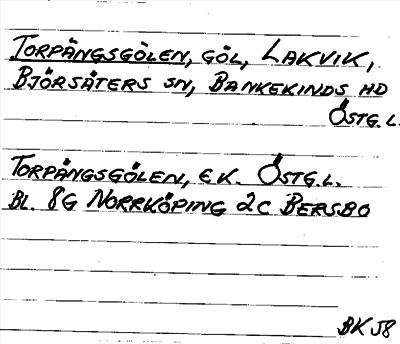 TORPÄNGSGÖLEN, GÖL, LAKVIK,
BJÖRSÄTERS SN, BANKEKINDS HD
ÖSTG.L.
TORPÄNGSGÖLEN, E.K. ÖSTG.L.
BL. 8G NORRKÖPING 2C BERSBO
BK 58